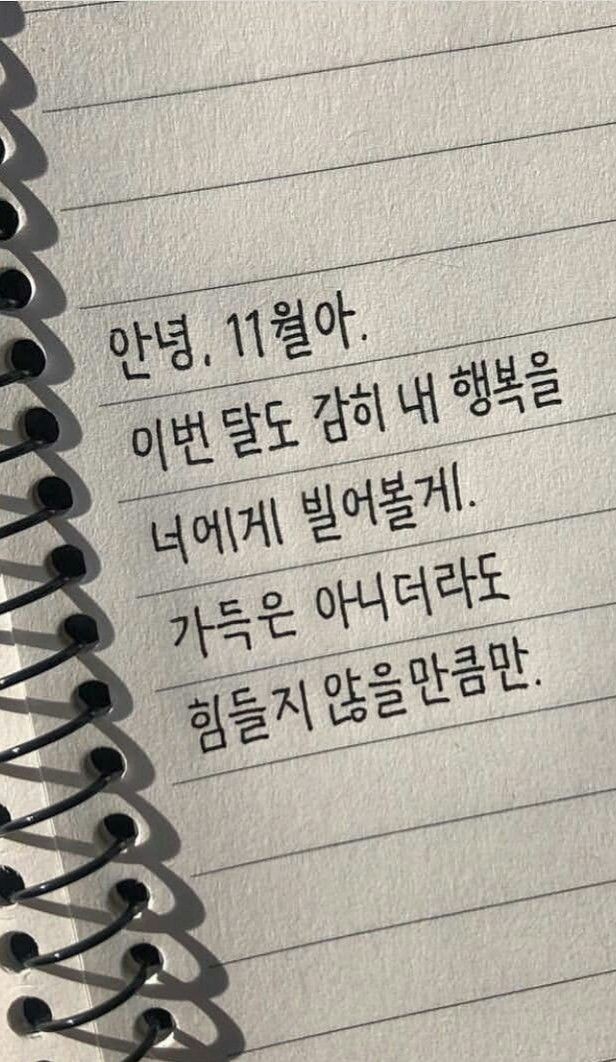 안녕, 11월아.
이번 달도 감히 내 행복을
너에게 빌어볼게.
가득은 아니더라도
힘들지 않을만큼만.